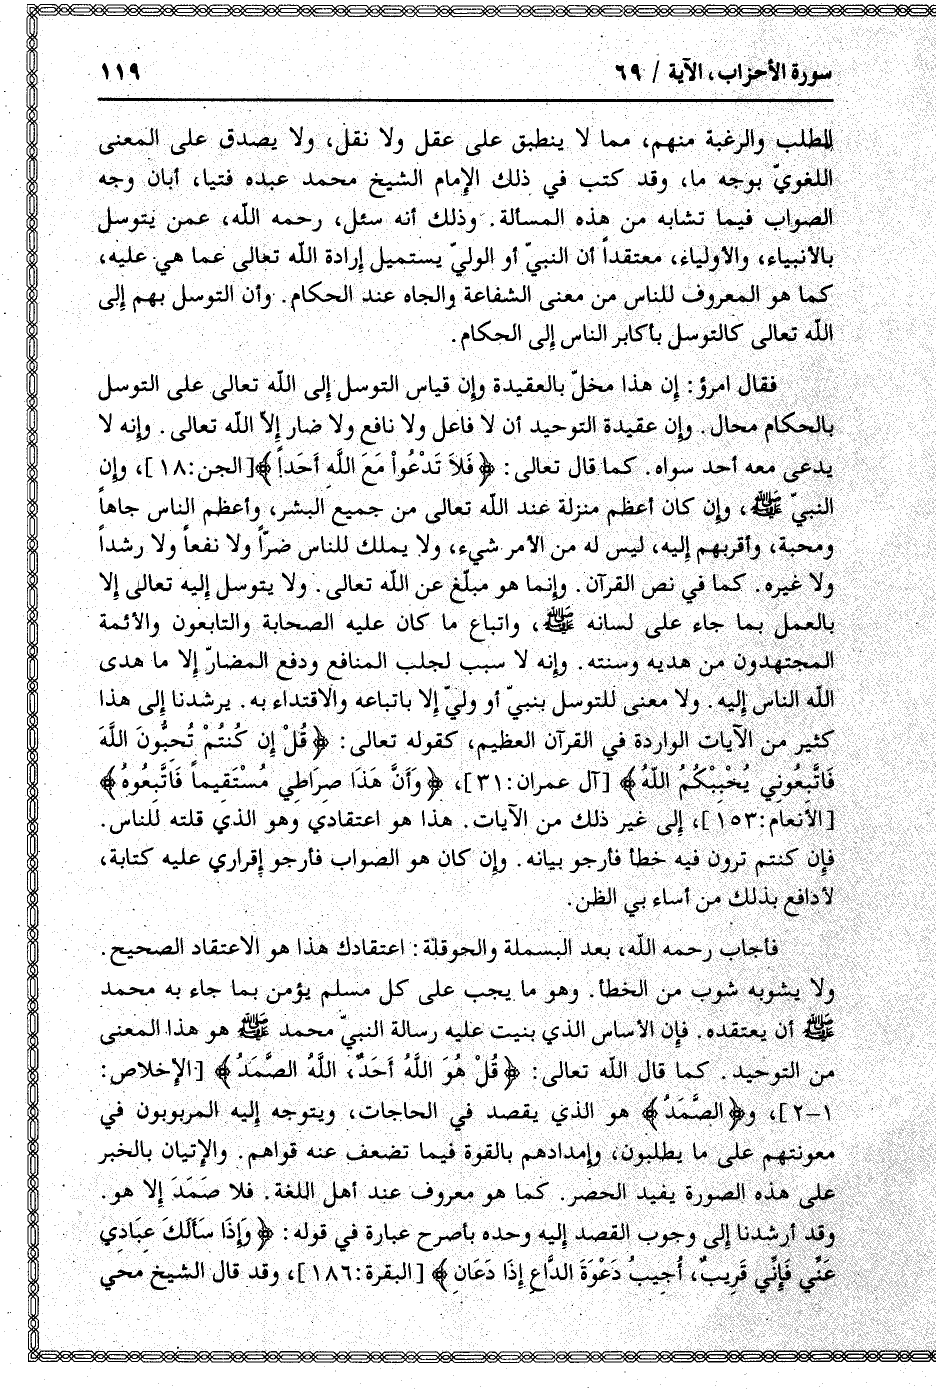 سورة الأحزاب، الآية / ٦٩
١١٩
الطلب والرغبة منهم، مما لا ينطبق على عقل ولا نقل، ولا يصدق على المعنى
اللغويّ بوجه ما، وقد كتب في ذلك الإمام الشيخ محمد عبده فتيا، أبان وجه
الصواب فيما تشابه من هذه المسألة. وذلك أنه سئل، رحمه الله، عمن يتوسل
بالأنبياء، والأولياء، معتقداً أن النبيّ أو الوليّ يستميل إرادة الله تعالى عما هي عليه،
كما هو المعروف للناس من معنى الشفاعة والجاه عند الحكام. وأن التوسل بهم إلى
الله تعالى كالتوسل بأكابر الناس إلى الحكام.
فقال امرؤ: إن هذا مخلّ بالعقيدة وإن قياس التوسل إلى الله تعالى على التوسل
بالحكام محال. وإن عقيدة التوحيد أن لا فاعل ولا نافع ولا ضار إلاّ الله تعالى. وإنه لا
يدعى معه أحد سواه. كما قال تعالى: ﴿فَلاَ تَدْعُواْ مَعَ اللَّهِ أَحَداً﴾ [الجن:١٨]، وإن
النبيّ ﷺ، وإن كان أعظم منزلة عند الله تعالى من جميع البشر، وأعظم الناس جاهاً
ومحبة، وأقربهم إليه، ليس له من الأمر شيء، ولا يملك للناس ضرّاً ولا نفعاً ولا رشداً
ولا غيره. كما في نص القرآن. وإنما هو مبلّغ عن الله تعالى. ولا يتوسل إليه تعالى إلا
بالعمل بما جاء على لسانه ﷺ، واتباع ما كان عليه الصحابة والتابعون والأئمة
المجتهدون من هديه وسنته. وإنه لا سبب لجلب المنافع ودفع المضارّ إلا ما هدى
الله الناس إليه. ولا معنى للتوسل بنبيّ أو وليّ إلا باتباعه والاقتداء به. يرشدنا إلى هذا
كثير من الآيات الواردة في القرآن العظيم، كقوله تعالى: ﴿قُلْ إِن كُنتُمْ تُحبُّونَ اللَّهَ
فَاتَّبِعُونِي يُحْبِبْكُمُ اللَّهُ﴾ [آل عمران:٣١]، ﴿وَأَنَّ هَذَا صِرَاطِي مُسْتَقِيماً فَاتَّبِعُوهُ﴾
[الأنعام:١٥٣]، إلى غير ذلك من الآيات. هذا هو اعتقادي وهو الذي قلته للناس.
فإن كنتم ترون فيه خطأ فأرجو بيانه. وإن كان هو الصواب فأرجو إقراري عليه كتابة،
لأدافع بذلك من أساء بي الظن.
فأجاب رحمه الله، بعد البسملة والحوقلة: اعتقادك هذا هو الاعتقاد الصحيح.
ولا يشوبه شوب من الخطأ. وهو ما يجب على كل مسلم يؤمن بما جاء به محمد
ﷺ أن يعتقده. فإن الأساس الذي بنيت عليه رسالة النبيّ محمد ﷺ هو هذا المعنى
من التوحيد. كما قال الله تعالى: ﴿قُلْ هُوَ اللَّهُ أَحَدٌ، اللَّهُ الصَّمَدُ﴾ [الإخلاص:
١-٢]، و﴿الصَّمَدُ﴾ هو الذي يقصد في الحاجات، ويتوجه إليه المربوبون في
معونتهم على ما يطلبون، وإمدادهم بالقوة فيما تضعف عنه قواهم. والإتيان بالخبر
على هذه الصورة يفيد الحصر. كما هو معروف عند أهل اللغة. فلا صَمَدَ إلا هو.
وقد أرشدنا إلى وجوب القصد إليه وحده بأصرح عبارة في قوله: ﴿وَإِذَا سَأَلَكَ عِبَادِي
عَنِّي فَإِنِّي قَرِيبٌ، أُجِيبُ دَعْوَةَ الدَّاعِ إِذَا دَعَانِ﴾ [البقرة:١٨٦]، وقد قال الشيخ محي